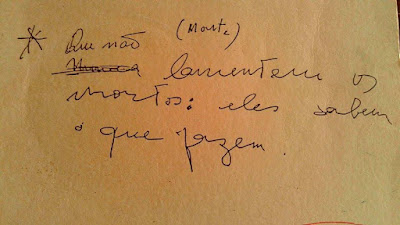 * Que não (Morte)
Nunca lamentem os
mortos: eles sabem
o que fazem.